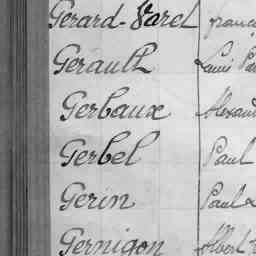 Gerard-Varet
Gerault Louis
Gerbaux
Gerbel Paul
Gerin Paul
Gernigon Albert